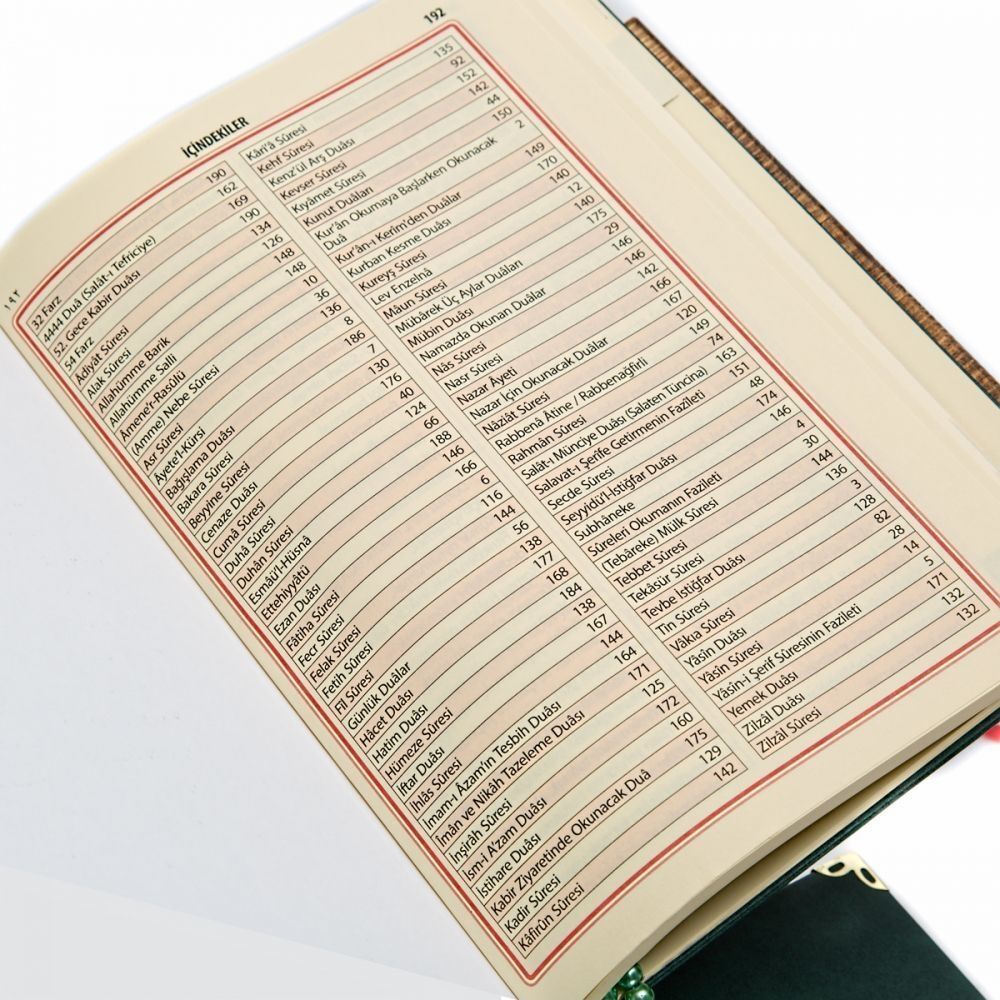 192
١٩٢
İÇİNDEKİLER
32 Farz 190
4444 Duâ (Salât-ı Tefriciye) 162
52. Gece Kabir Duâsı 169
54 Farz 190
Âdiyât Sûresi 134
Alak Sûresi 126
Allahümme Barik 148
Allahümme Salli 148
Âmene'r-Rasülü 10
(Amme) Nebe Sûresi 36
Asr Sûresi 136
Âyete'l-Kürsi 8
Bağışlama Duâsı 186
Bakara Sûresi 7
Beyyine Sûresi 130
Cenaze Duâsı 176
Cumâ Sûresi 40
Duhâ Sûresi 124
Duhân Sûresi 66
Esmâü'l-Hüsnâ 188
Ettehiyyatü 146
Ezan Duâsı 166
Fâtiha Sûresi 6
Fecr Sûresi 116
Felak Sûresi 144
Fetih Sûresi 56
Fil Sûresi 138
Günlük Duâlar 177
Hâcet Duâsı 168
Hatim Duâsı 184
Hümeze Sûresi 138
İftar Duâsı 167
İhlâs Sûresi 144
İmam-ı Âzam'ın Tesbih Duâsı 164
İmân ve Nikâh Tazeleme Duâsı 171
İnşirâh Sûresi 125
İsm-i A'zam Duâsı 172
İstihare Duâsı 160
Kabir Ziyaretinde Okunacak Duâ 175
Kadir Sûresi 129
Kâfirûn Sûresi 142
Kâri'â Sûresi 135
Kehf Sûresi 92
Kenz'ül Arş Duâsı 152
Kevser Sûresi 142
Kıyâmet Sûresi 44
Kunut Duâları 150
Kur'ân Okumaya Başlarken Okunacak 2
Duâ
Kur'ân-ı Kerîm'den Duâlar 149
Kurban Kesme Duâsı 170
Kureyş Sûresi 140
Lev Enzelnâ 12
Mâun Sûresi 140
Mübârek Üç Aylar Duâları 175
Mübin Duâsı 29
Namazda Okunan Duâlar 146
Nâs Sûresi 146
Nasr Sûresi 142
Nazar Âyeti 166
Nazar İçin Okunacak Duâlar 167
Nâziât Sûresi 120
Rabbenâ Âtine / Rabbenağfirli 149
Rahmân Sûresi 74
Salât-ı Münciye Duâsı (Salaten Tüncina) 163
Salavat-ı Şerife Getirmenin Fazîleti 151
Secde Sûresi 48
Seyyidü'l-İstiğfar Duâsı 174
Subhâneke 146
Sûreleri Okumanın Fazîleti 4
(Tebâreke) Mülk Sûresi 30
Tebbet Sûresi 144
Tekâsür Sûresi 136
Tevbe İstiğfar Duâsı 3
Tin Sûresi 128
Vâkıa Sûresi 82
Yâsin Duâsı 28
Yâsin Sûresi 14
Yâsin-i Şerif Sûresinin Fazileti 5
Yemek Duâsı 171
Zilzâl Duâsı 132
Zilzâl Sûresi 132